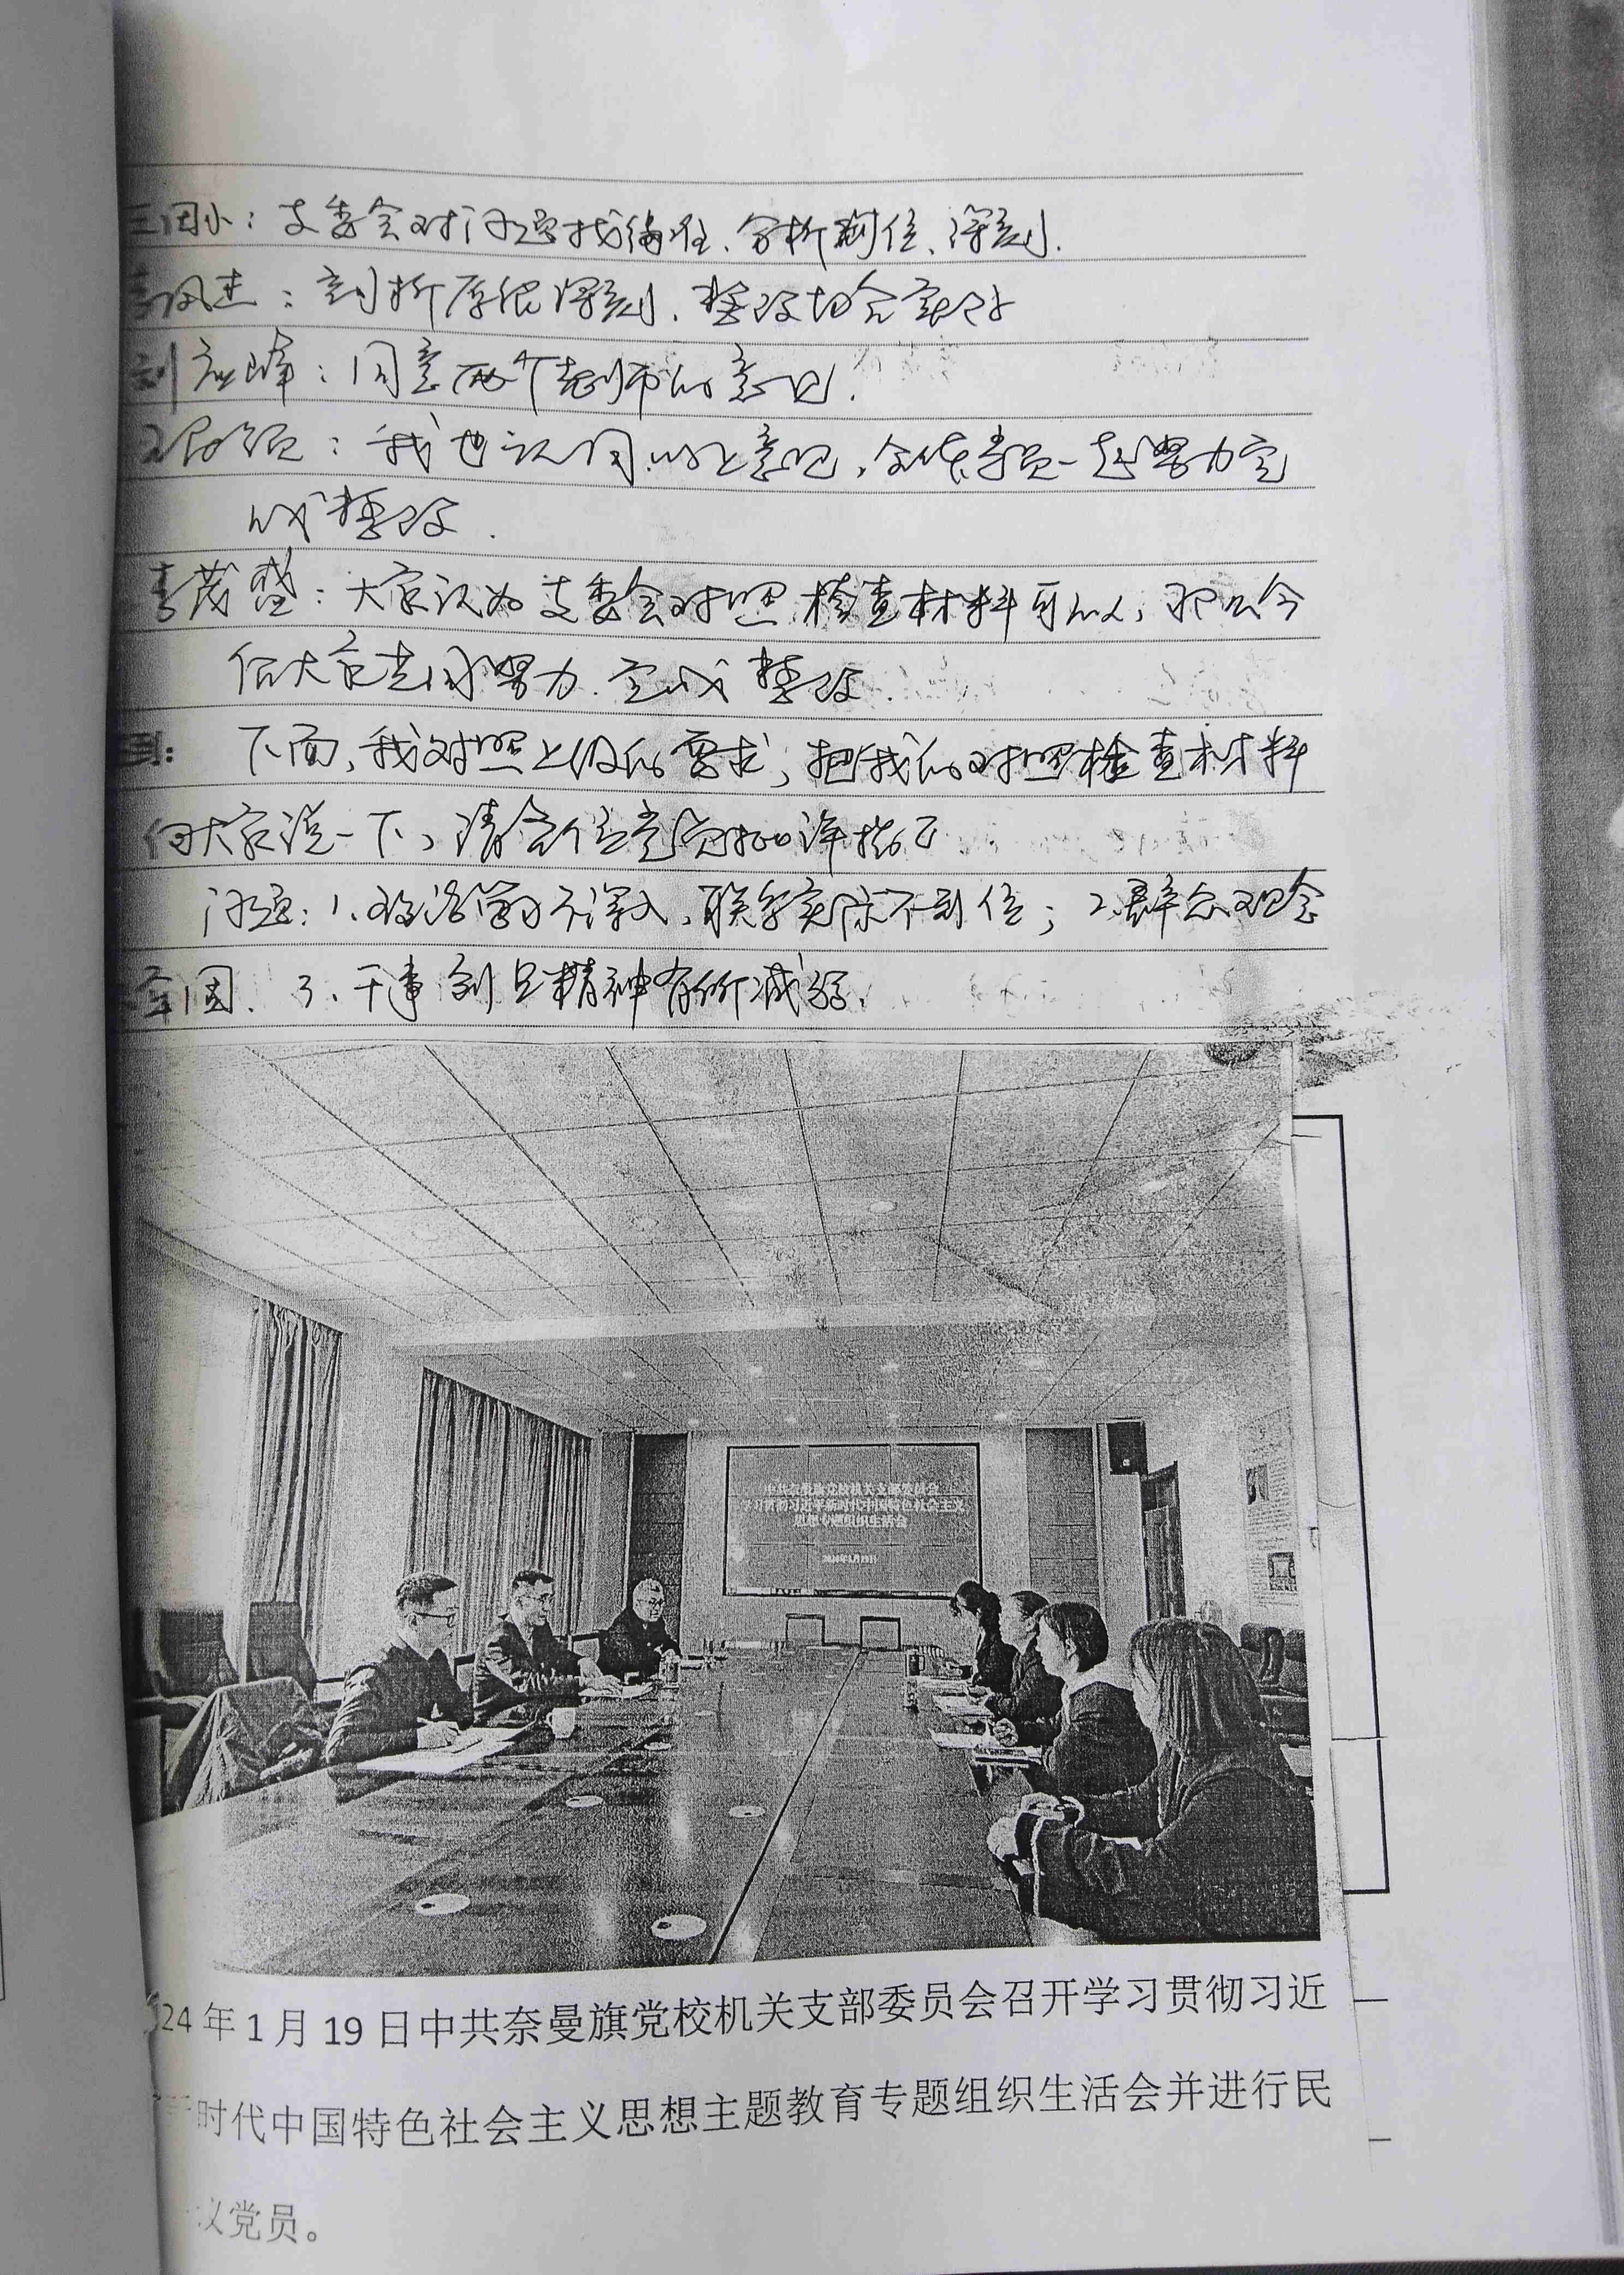 ：支委会对问题找得准、分析到位、深刻.
：剖析原因深刻.整改切合实际
刘 峰：同意两个老师的意见.
：我也认同以上意见,全体党员一起努力完
成整改.
李茂盛：大家认为支委会对照检查材料可以,那么今
后大家共同努力.完成整改.
下面,我对照上级的要求,把我的对照检查材料
向大家说一下,请各位党员批评指正
问题：1.政治学习不深入,联系实际不到位；2.群众观念
牢固. 3.干事创业精神有所减弱.
中共奈曼旗党校机关支部委员会
学习贯彻习近平新时代中国特色社会主义
思想专题组织生活会
24年1月19日中共奈曼旗党校机关支部委员会召开学习贯彻习近
时代中国特色社会主义思想主题教育专题组织生活会并进行民
议党员。